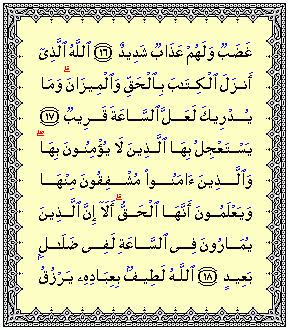 غَضَبٌ وَلَهُمْ عَذَابٌ شَدِيدٌ ١٦ اللَّهُ الَّذِىٓ
أَنزَلَ الْكِتَـٰبَ بِالْحَقِّ وَالْمِيزَانَ ۗ وَمَا
يُدْرِيكَ لَعَلَّ السَّاعَةَ قَرِيبٌ ١٧
يَسْتَعْجِلُ بِهَا الَّذِينَ لَا يُؤْمِنُونَ بِهَا ۖ
وَالَّذِينَ ءَامَنُوا۟ مُشْفِقُونَ مِنْهَا
وَيَعْلَمُونَ أَنَّهَا الْحَقُّ ۗ أَلَآ إِنَّ الَّذِينَ
يُمَارُونَ فِى السَّاعَةِ لَفِى ضَلَـٰلٍۭ
بَعِيدٍ ١٨ اللَّهُ لَطِيفٌۢ بِعِبَادِهِۦ يَرْزُقُ